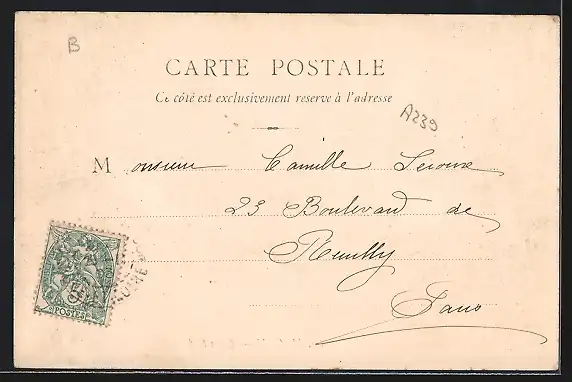 B
CARTE POSTALE
Ce côté est exclusivement réservé à l'adresse
A239
Monsieur Camille
23 Boulevard de
Reuilly
Paris
POSTES